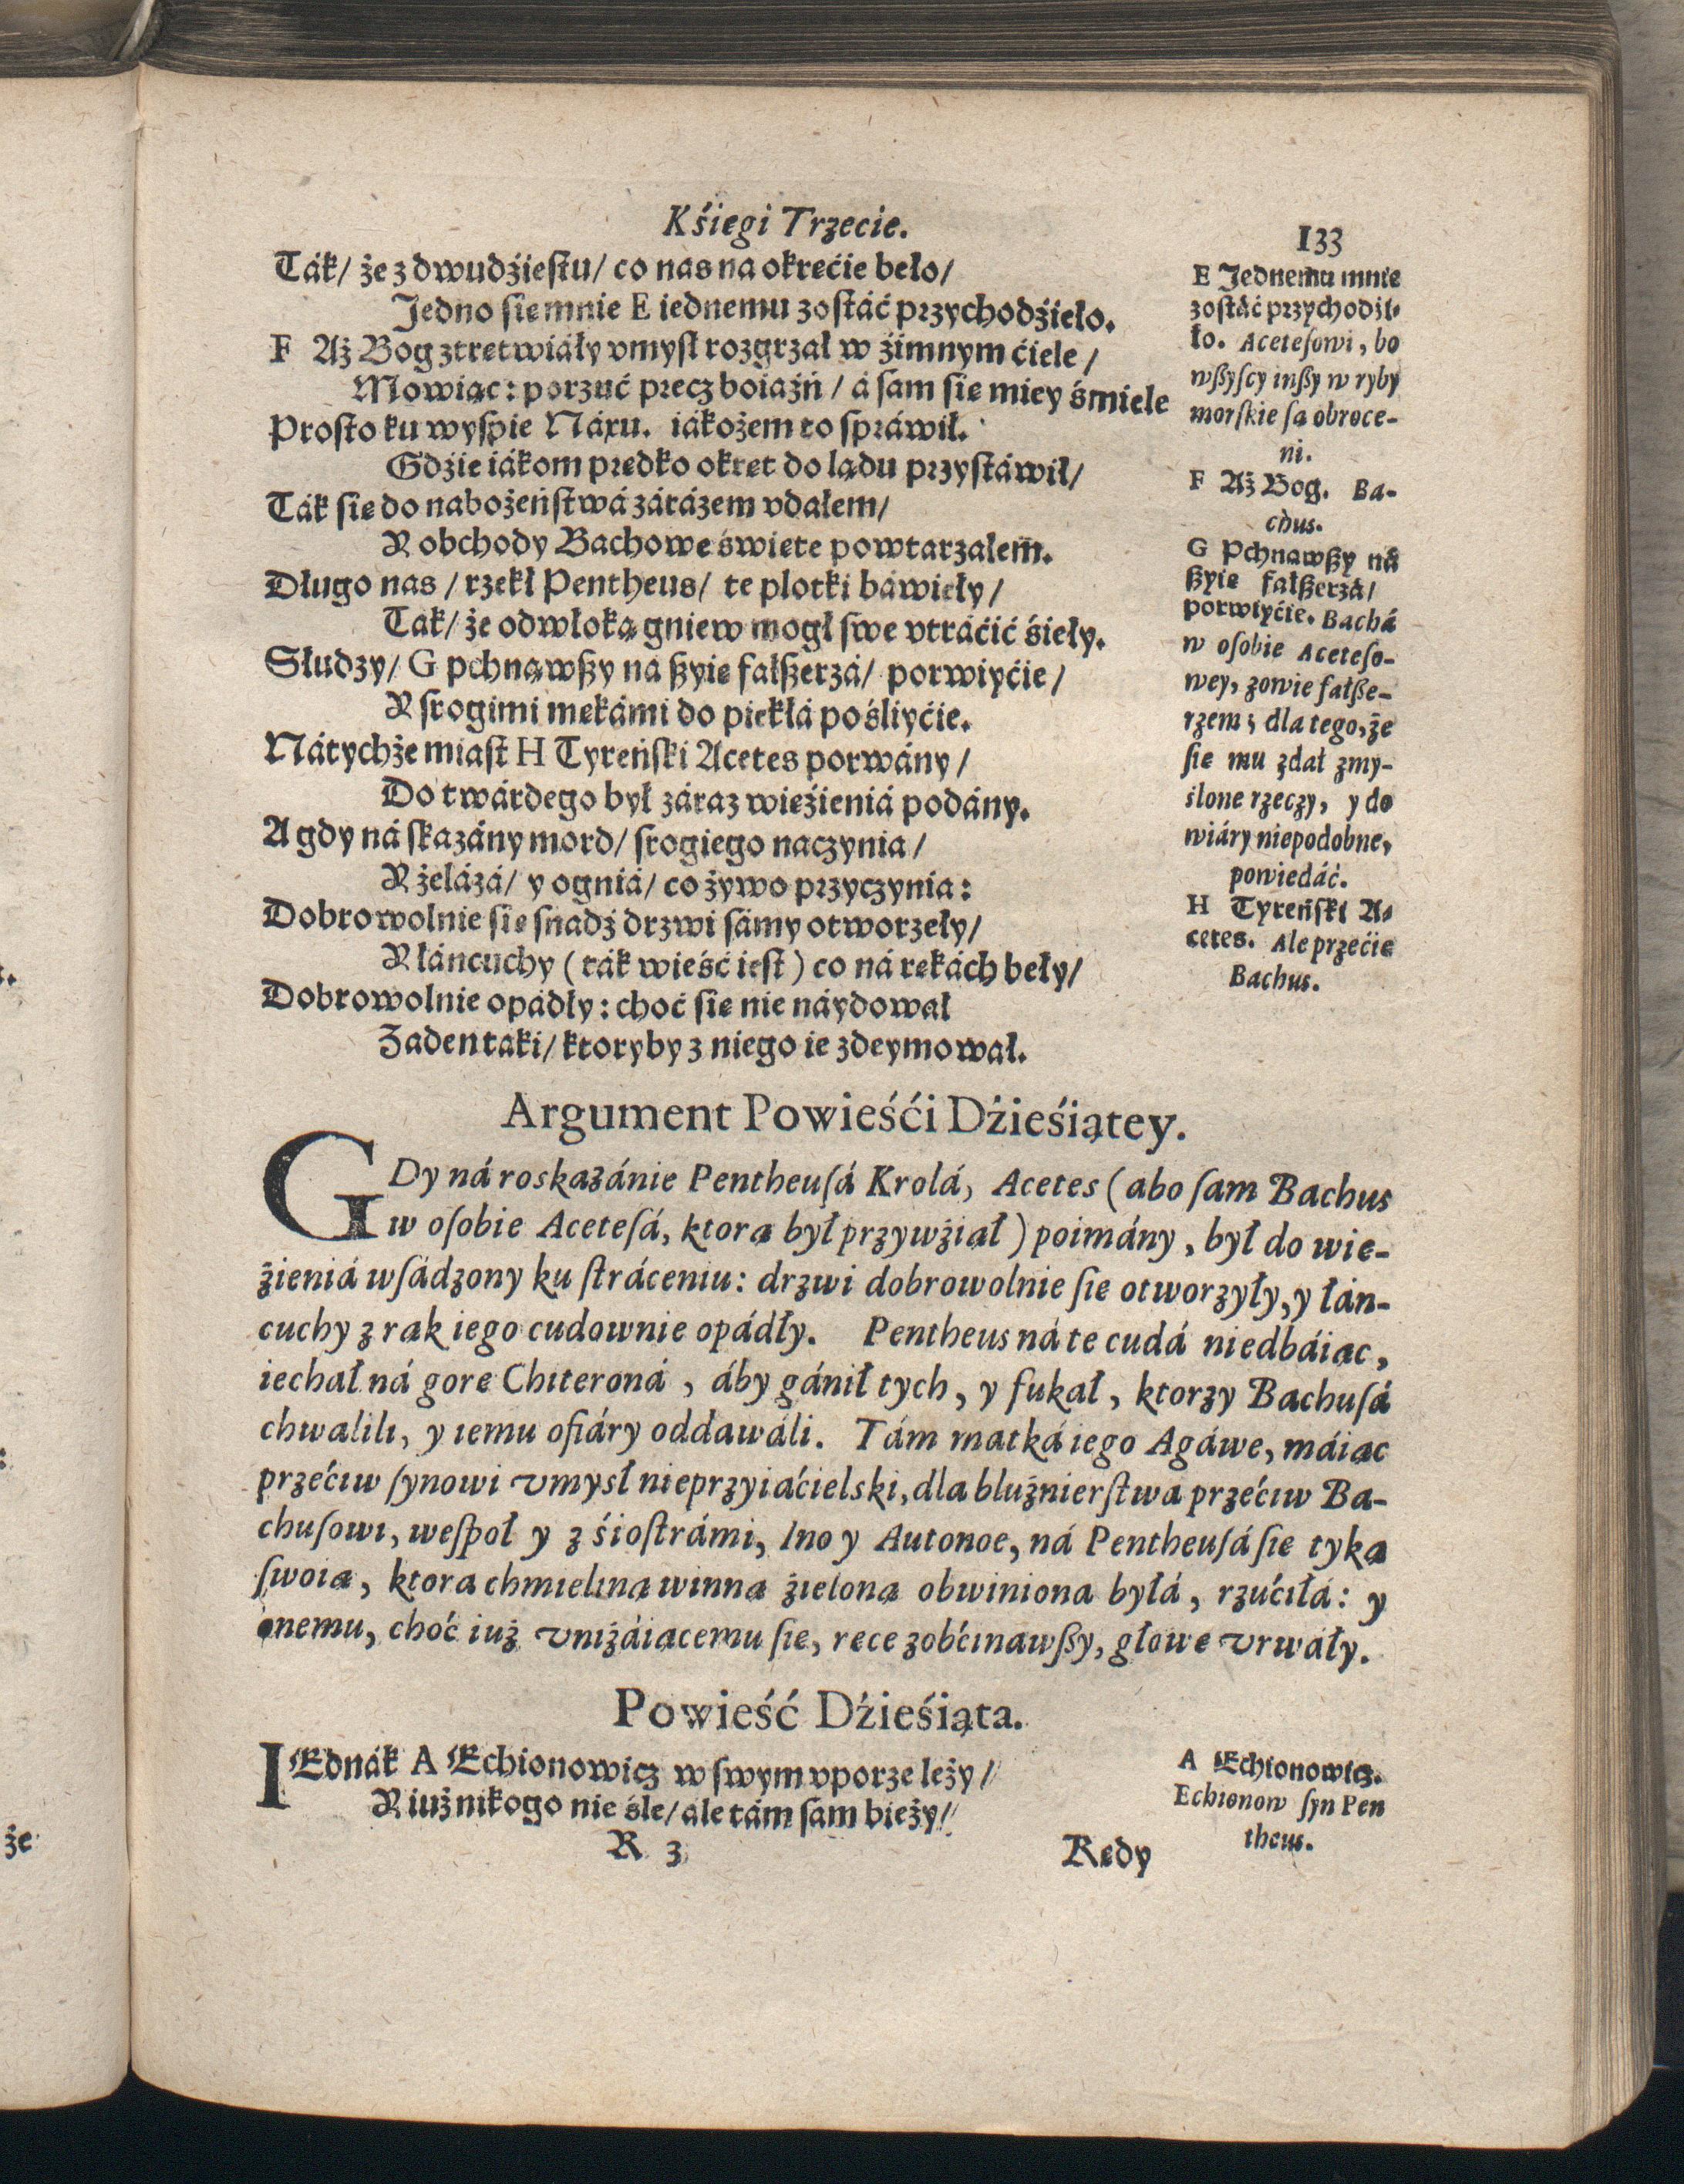 Kśiegi Trzecie.
133
Ták/ że z dwudźieſtu/ co nas na okrećie beło/
Jedno ſie mnie E iednemu zoſtáć przychodźieło.
F Aż Bog ztretwiáły vmyſł rozgrzał w źimnym ćiele/
Mowiąc: porzuć precz boiaźń/ á ſam ſie miey śmiele
Proſto ku wyſpie Náxu. iákożem to ſpráwił.
Gdźie iákom predko okret do lądu przyſtáwił/
Ták ſie do nabożeńſtwá zárázem vdałem/
Y obchody Bachowe świete powtarzałem.
Długo nas/ rzekł Pentheus/ te plotki báwieły/
Tak/ że odwłoką gniew mogł ſwe vtráćić śieły.
Słudzy/ G pchnąwßy ná ßyie fałßerzá/ porwiyćie/
Y ſrogimi mekámi do piekłá pośliyćie.
Nátychże miaſt H Tyreńſki Acetes porwány/
Do twárdego był záraz wieźieniá podány.
A gdy ná ſkazány mord/ ſrogiego naczynia/
Y żelázá/ y ogniá/ co żywo przyczynia:
Dobrowolnie ſie ſnadź drzwi ſámy otworzeły/
Y łáncuchy (ták wieść ieſt) co ná rekách beły/
Dobrowolnie opádły: choć ſie nie náydował
Zaden taki/ ktoryby z niego ie zdeymował.
E Jednemu mnie
zoſtáć przychodźi-
ło. Aceteſowi, bo
wßyſcy inßy w ryby
morſkie ſą obroce-
ni.
F Aż Bog. Ba-
chus.
G Pchnawßy ná
ßyie fałßerzá/
porwiyćie. Bachá
w oſobie Aceteſo-
wey, zowie fałße-
rzem; dla tego, że
ſie mu zdał zmy-
ślone rzeczy, y do
wiáry niepodobne,
powiedáć.
H Tyreńſki A-
cetes. Ale przećie
Bachus.
Argument Powieśći Dźieśiątey.
GDy ná roskazánie Pentheuſá Krolá, Acetes (abo ſam Bachus
w oſobie Aceteſá, ktorą był przywźiął) poimány, był do wie-
źieniá wſádzony ku ſtráceniu: drzwi dobrowolnie ſie otworzyły, y łán-
cuchy z rąk iego cudownie opádły. Pentheus ná te cudá niedbáiąc,
iechał ná gore Chiteroná, áby gánił tych, y fukał, ktorzy Bachuſá
chwalili, y iemu ofiáry oddawáli. Tám matká iego Agáwe, máiąc
przećiw ſynowi vmysł nieprzyiáćielski, dla bluźnierſtwa przećiw Ba-
chuſowi, weſpoł y z śioſtrámi, Ino y Autonoe, ná Pentheuſá ſie tyką
ſwoią, ktora chmieliną winną źieloną obwiniona byłá, rzućiłá: y
onemu, choć iuż vniżáiącemu ſie, rece zobćinawßy, głowe vrwáły.
Powieść Dźieśiąta.
IEdnák A Echionowicz w ſwym vporze leży/
Y iuż nikogo nie śle/ ale tám ſam bieży/
A Echionowicz.
Echionow ſyn Pen
theus.
R 3
Kedy
że